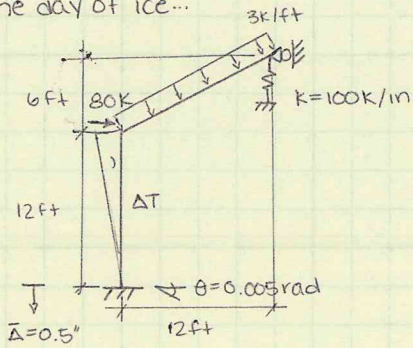 he day of ice...
3k/ft
6ft
80K
K=100K/in
12ft
ΔT
θ=0.005rad
Δ̄=0.5"
12ft